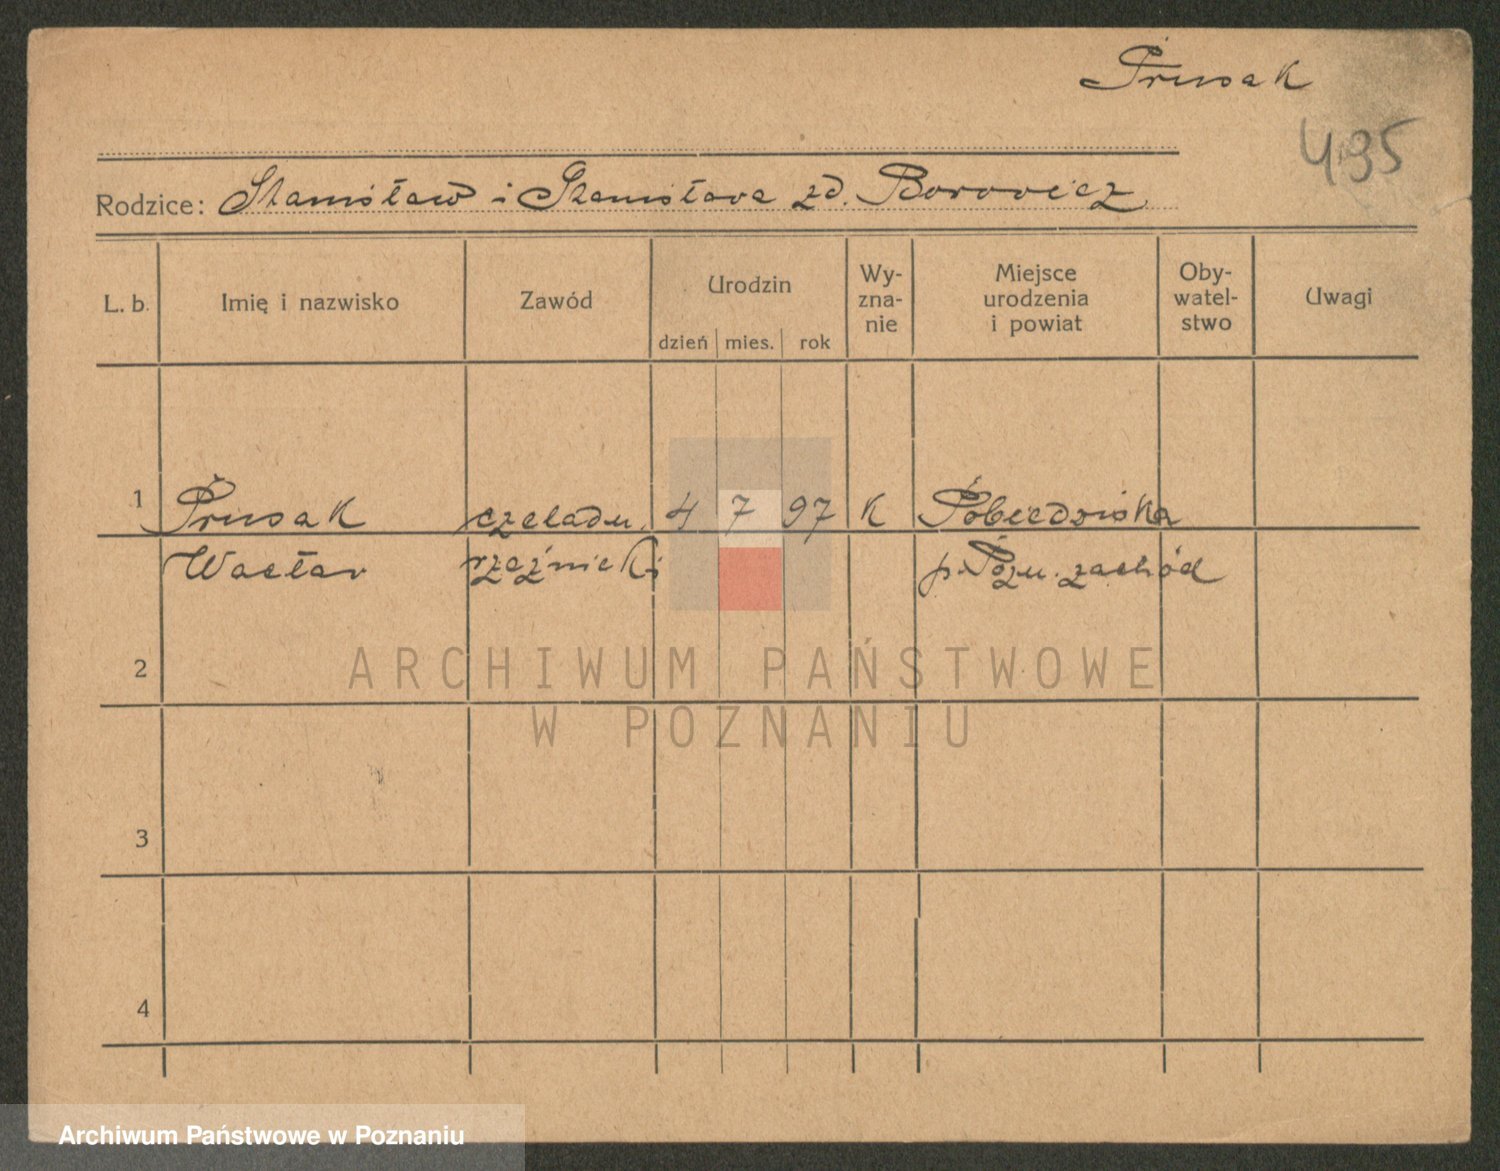 Prusak
495
Rodzice: Stanisław i Stanisława zd. Borowicz
L. b. Imię i nazwisko Zawód Urodzin Wy-zna-nie Miejsce urodzenia i powiat Oby-watel-stwo Uwagi
dzień mies. rok
1 Prusak czeladn. 4 7 97 K Pobiedziska
Wacław rzeźnicki p. Pozn. zachód
2
ARCHIWUM PAŃSTWOWE
W POZNANIU
3
4
Archiwum Państwowe w Poznaniu